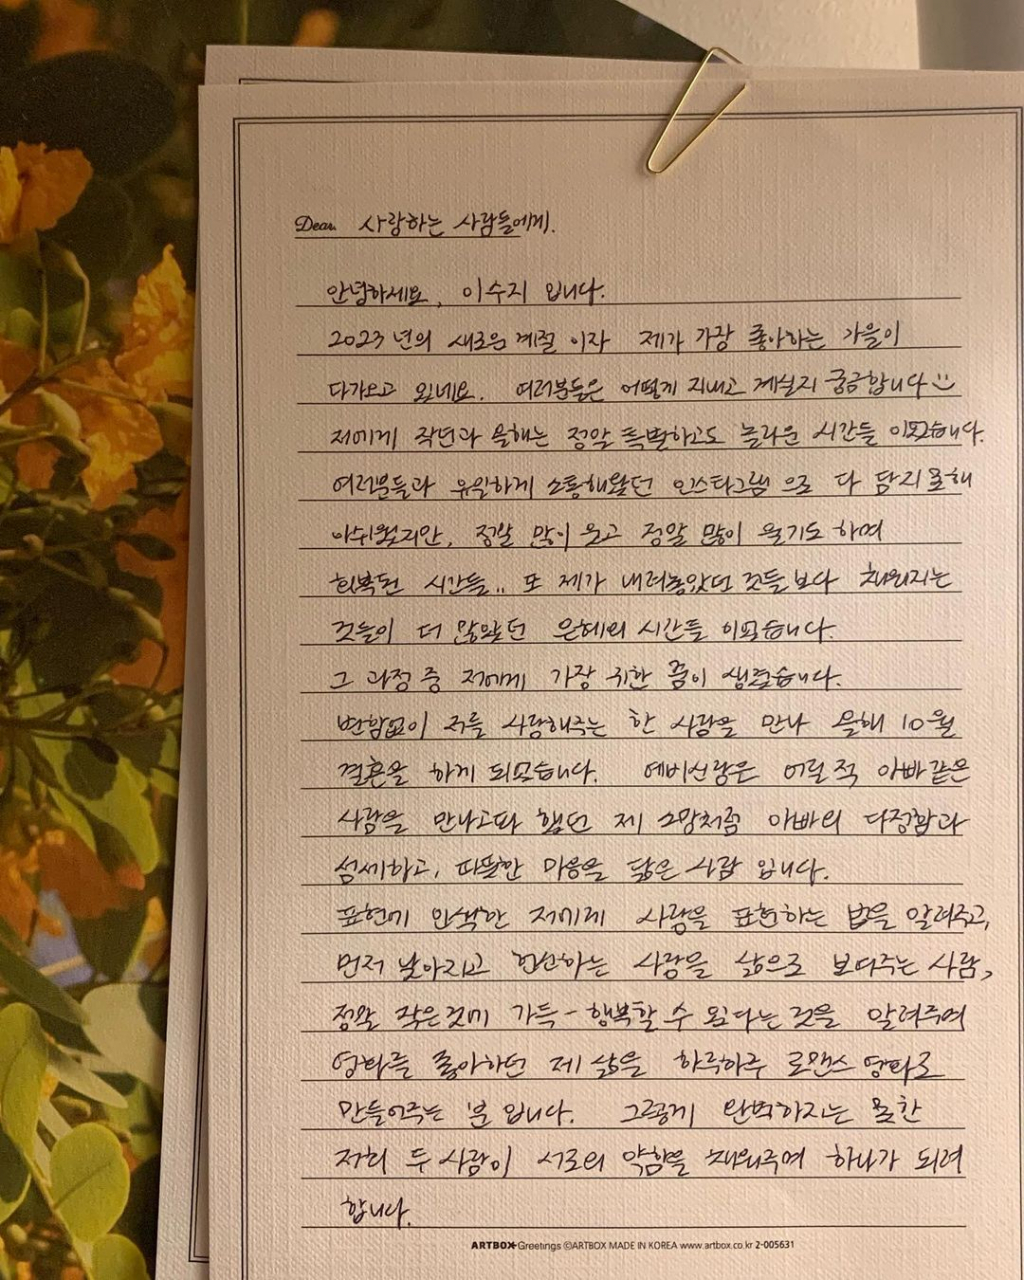 Dear. 사랑하는 사람들에게.
안녕하세요, 이수지 입니다.
2023년의 새로운 계절 이자 제가 가장 좋아하는 가을이
다가오고 있네요. 여러분들은 어떻게 지내고 계실지 궁금합니다
저에게 작년과 올해는 정말 특별하고도 놀라운 시간들 이었습니다.
여러분들과 유일하게 소통해왔던 인스타그램 으로 다 담지 못해
아쉬웠지만, 정말 많이 웃고 정말 많이 울기도 하며
회복된 시간들.. 또 제가 내려놓았던 것들 보다 채워지는
것들이 더 많았던 은혜의 시간들 이었습니다.
그 과정 중 저에게 가장 귀한 꿈이 생겼습니다.
변함없이 저를 사랑해주는 한 사람을 만나 올해 10월
결혼을 하게 되었습니다. 예비신랑은 어릴 적 아빠같은
사람을 만나고파 했던 제 소망처럼 아빠의 다정함과
섬세하고, 따뜻한 마음을 닮은 사람 입니다.
표현에 인색한 저에게 사랑을 표현하는 법을 알려주고,
먼저 낮아지고 헌신하는 사랑을 삶으로 보여주는 사람,
정말 작은것에 가득-행복할 수 있다는 것을 알려주며
영화를 좋아하던 제 삶을 하루하루 로맨스 영화로
만들어주는 분 입니다. 그렇게 완벽하지는 못한
저희 두 사람이 서로의 약함을 채워주며 하나가 되려
합니다.
ARTBOX Greetings ©ARTBOX MADE IN KOREA www.artbox.co.kr 2-005631